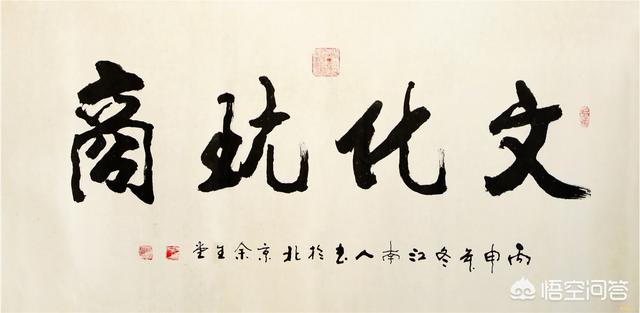 文化玩商
丙申年冬江南人书於北京余生堂
悟空问答